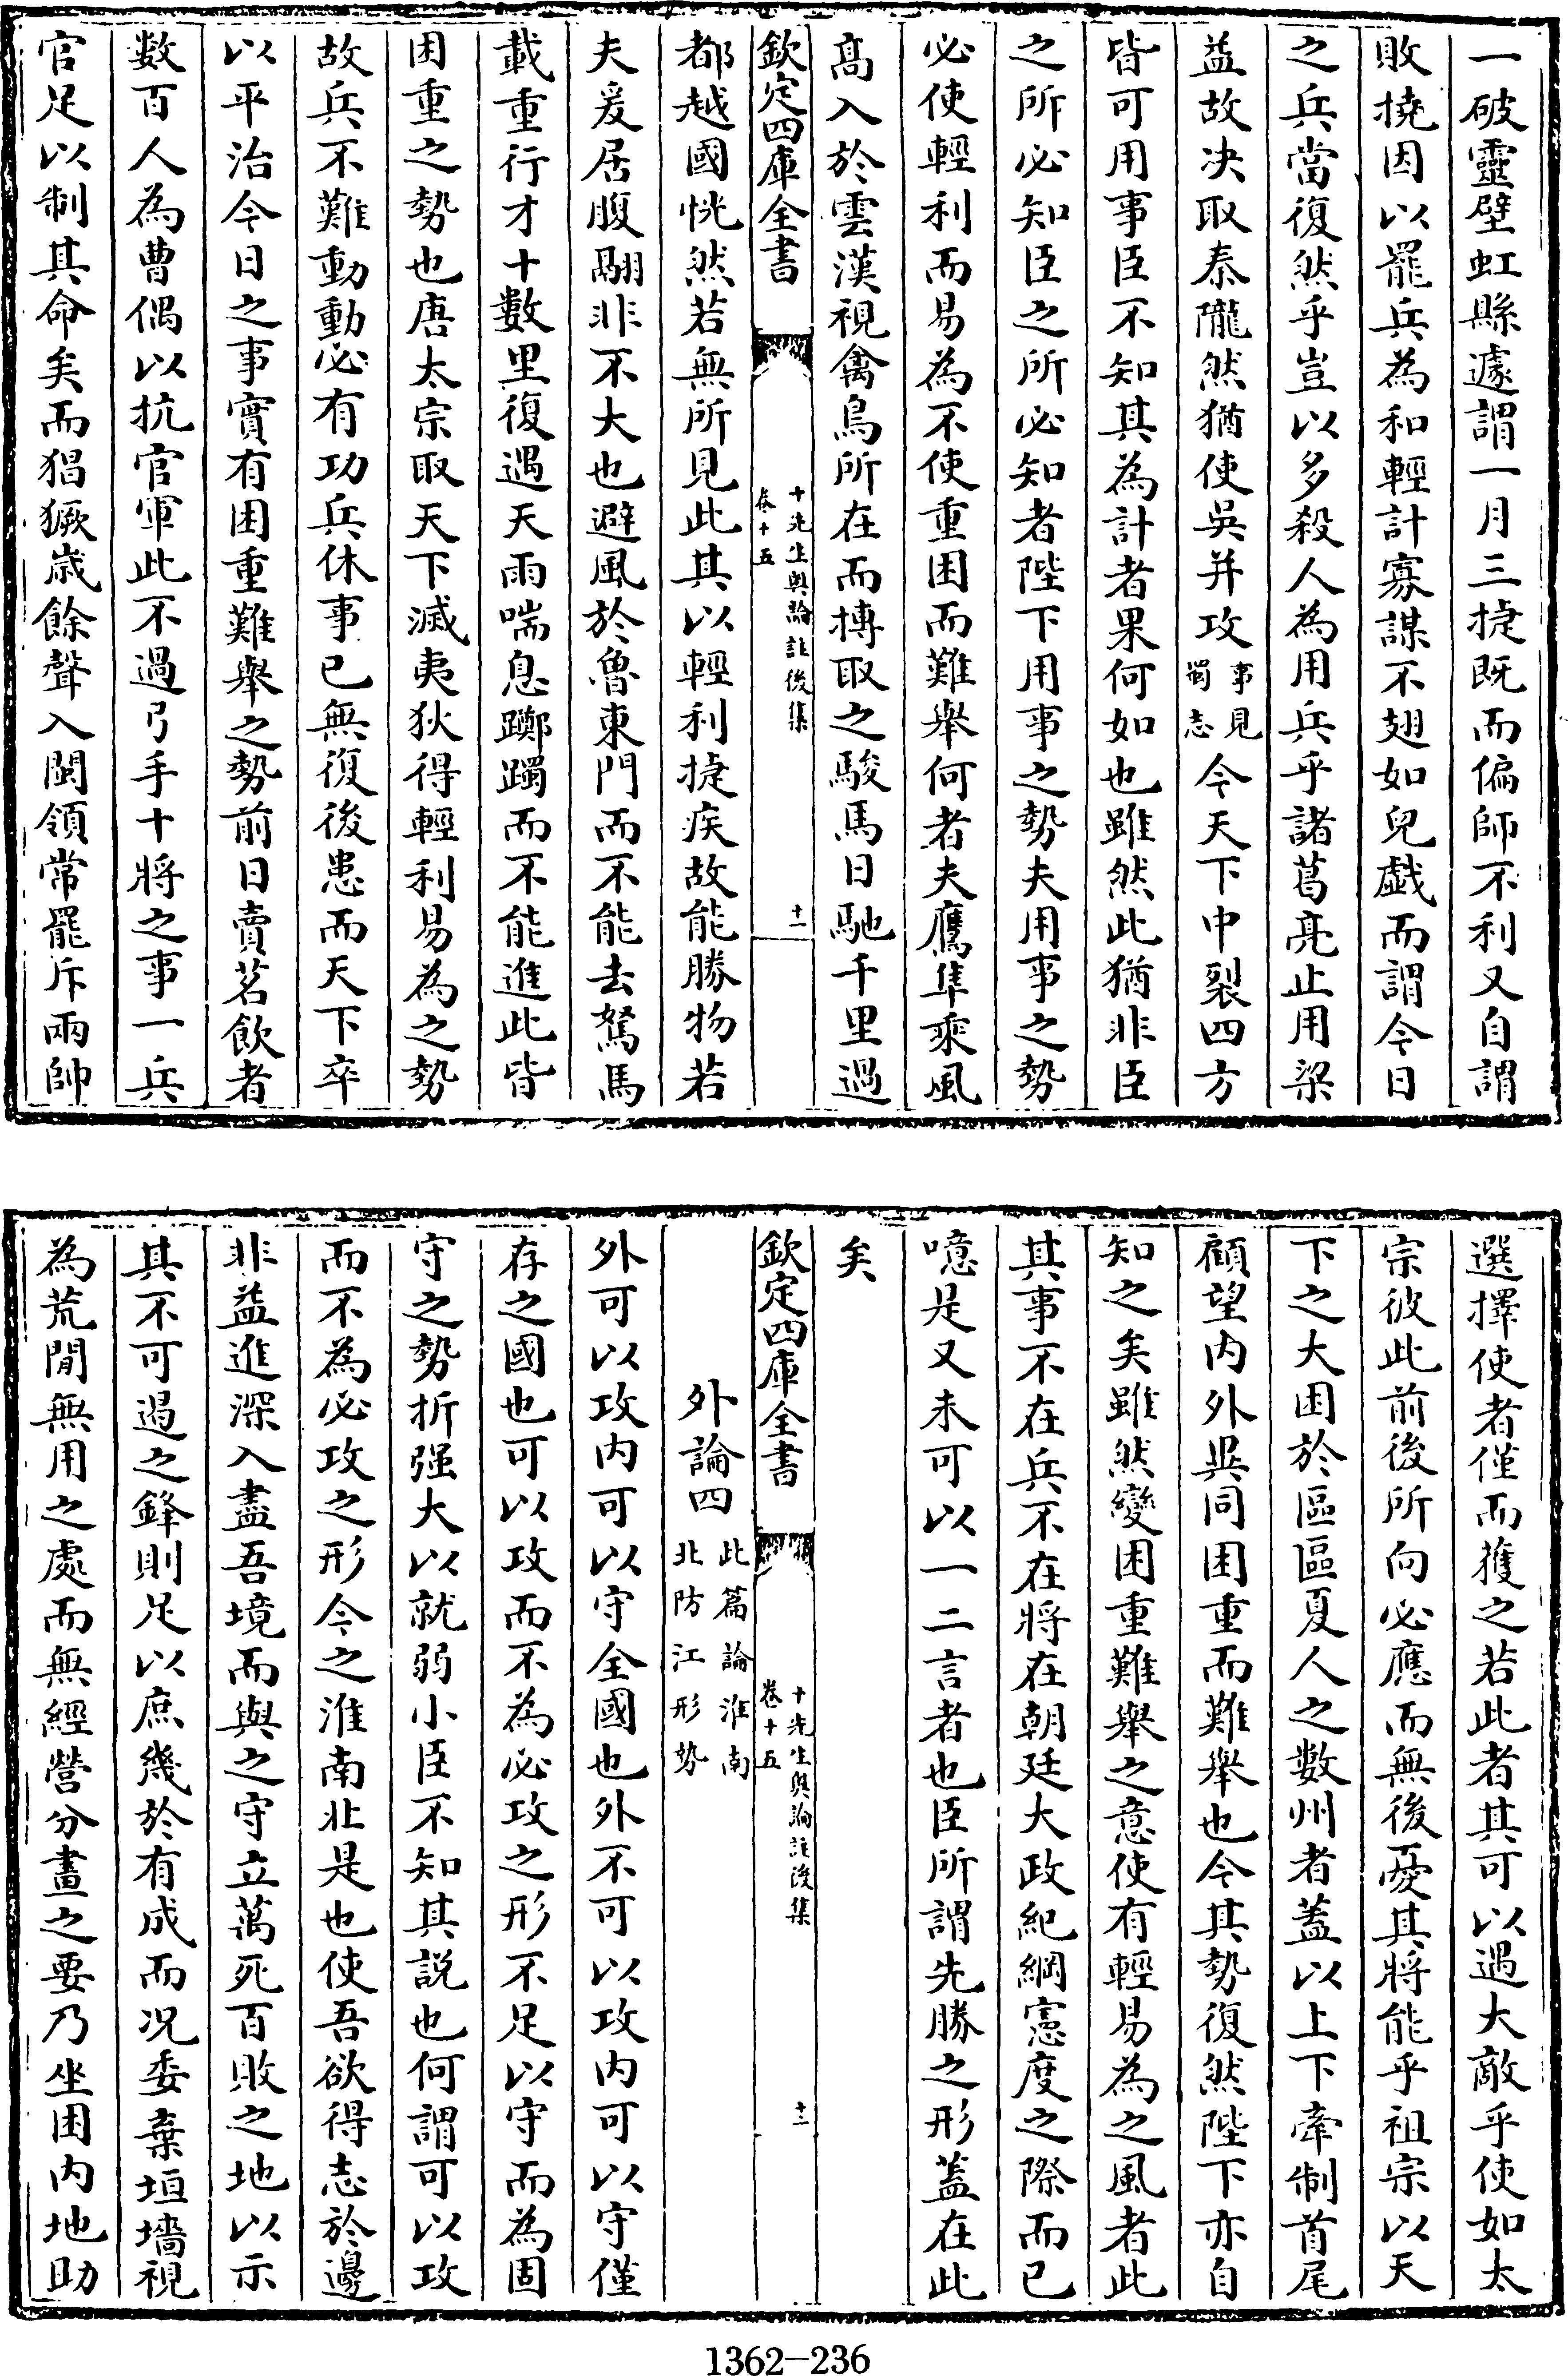 一破靈壁虹縣遽謂一月三捷既而偏師不利又自謂
敗撓因以罷兵為和輕計寡謀不翅如兒戯而謂今日
之兵當復然乎豈以多殺人為用兵乎諸葛亮止用梁
益故决取秦隴然猶使吳并攻事見蜀志今天下中裂四方
皆可用事臣不知其為計者果何如也雖然此猶非臣
之所必知臣之所必知者陛下用事之勢夫用事之勢
必使輕利而易為不使重困而難舉何者夫鷹隼乘風
髙入於雲漢視禽鳥所在而摶取之駿馬日馳千里過
欽定四庫全書
十先生奥論註後集
卷十五
十一
都越國恍然若無所見此其以輕利捷疾故能勝物若
夫爰居腹翮非不大也避風於魯東門而不能去駑馬
載重行才十數里復遇天雨喘息躑躅而不能進此皆
困重之勢也唐太宗取天下滅夷狄得輕利易為之勢
故兵不難動動必有功兵休事已無復後患而天下卒
以平治今日之事實有困重難舉之勢前日賣茗飲者
數百人為曹偶以抗官軍此不過弓手十將之事一兵
官足以制其命矣而猖獗歳餘聲入閩領常罷斥兩帥
選擇使者僅而獲之若此者其可以遇大敵乎使如太
宗彼此前後所向必應而無後憂其將能乎祖宗以天
下之大困於區區夏人之數州者蓋以上下牽制首尾
顧望内外異同困重而難舉也今其勢復然陛下亦自
知之矣雖然變困重難舉之意使有輕易為之風者此
其事不在兵不在將在朝廷大政紀綱憲度之際而已
噫是又未可以一二言者也臣所謂先勝之形蓋在此
矣
欽定四庫全書
十先生奥論註後集
卷十五
十二
外論四此篇論淮南北防江形勢
外可以攻内可以守全國也外不可以攻内可以守僅
存之國也可以攻而不為必攻之形不足以守而為固
守之勢折强大以就弱小臣不知其説也何謂可以攻
而不為必攻之形今之淮南北是也使吾欲得志於邊
非益進深入盡吾境而與之守立萬死百敗之地以示
其不可遏之鋒則足以庶幾於有成而况委棄垣墻視
為荒閒無用之處而無經營分畫之要乃坐困内地助
1362-236